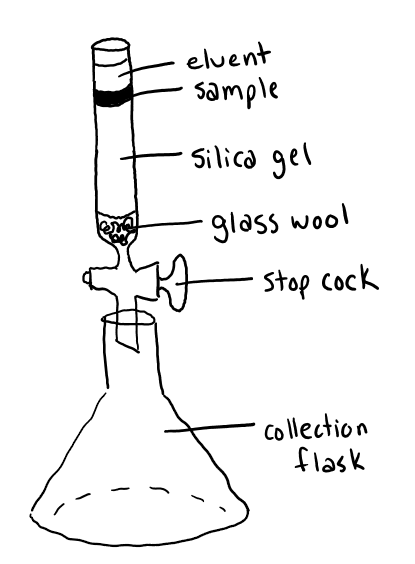 elvent
sample
silica gel
glass wool
stop cock
collection
flask